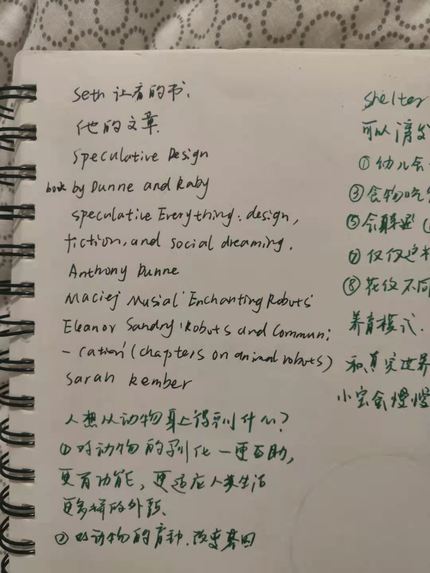 Seth 让看的书、
他的文章.
Speculative Design
book by Dunne and Raby
speculative Everything: design,
fiction, and social dreaming.
Anthony Dunne
Maciej Musial 'Enchanting Robots'
Eleanor Sandry 'Robots and Communi
-cation' (chapters on animal robots)
Sarah Kember
人想从动物身上得到什么?
①对动物的驯化—更互助,
更有功能,更适应人类生活
更多样的外貌、
②对动物的育种、改变基因
shelter
可以清
①幼儿会
③食物吃
⑤会
⑦仅仅这样
⑧花纹不同
养育模式.
和真实世界
小宝会慢慢